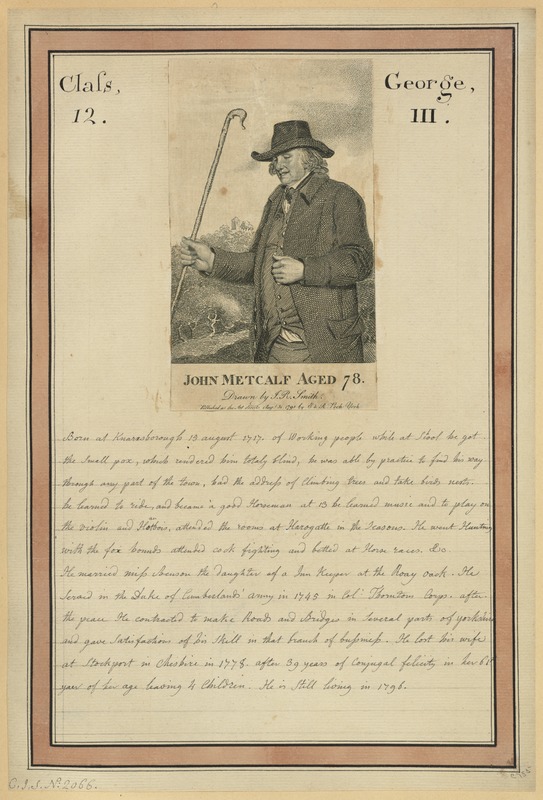 Claſs,
12.
George,
III.
JOHN METCALF AGED 78.
Drawn by J. R. Smith.
Born at Knaresborough 13 august 1717. of Working people while at Scool he got
the Small pox, which rendered him totaly blind, he was able by practice to find his way
through any part of the town, had the address of Climbing trees and take birds nests.
he learned to ride, and became a good Horseman at 13 he learned music and to play on
the violin and Hotbois, attended the rooms at Harogatte in the Seasons. He went Hunting
with the fox hounds attended cock fighting and betted at Horse races. &c.
He married miſs Benson the daughter of a Inn Keeper at the Roay oack. He
Served in the Duke of Cumberlands' army in 1745 in Col Thorntons Corps. after
the peace He contracted to make Roads and Bridges in Several parts of yorkshire
and gave Satisfaction of his Skill in that branch of buſsneſs. He lost his wife
at Stockport in Cheshire in 1778. after 39 years of Conjugal felicity in her 61
year of her age leaving 4 Children. He is Still living in 1796.
C.J.S. No. 2066.